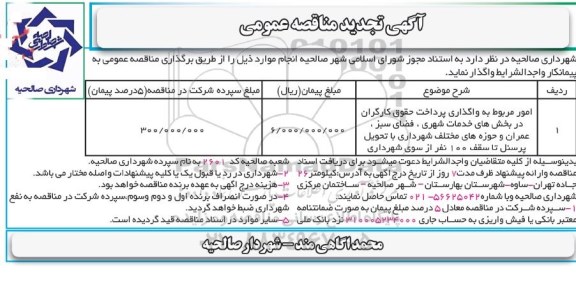 آگهی تجدید مناقصه عمومی
شهرداری صالحیه
شهرداری صالحیه در نظر دارد به استناد مجوز شورای اسلامی شهر صالحیه انجام موارد ذیل را از طریق برگذاری مناقصه عمومی به
پیمانکار واجدالشرایط واگذار نماید.
ردیف شرح موضوع مبلغ پیمان(ریال) مبلغ سپرده شرکت در مناقصه(۵درصد پیمان)
۱ امور مربوط به واگذاری پرداخت حقوق کارگران در بخش های خدمات شهری ، فضای سبز ، عمران و حوزه های مختلف شهرداری با تحویل پرسنل تا سقف ۱۰۰ نفر از سوی شهرداری ۶/۰۰۰/۰۰۰/۰۰۰ ۳۰۰/۰۰۰/۰۰۰
بدینوسیله از کلیه متقاضیان واجدالشرایط دعوت میشود برای دریافت اسناد
مناقصه وارائه پیشنهاد ظرف مدت ۷ روز از تاریخ درج آگهی به آدرس:کیلومتر۲۶
جاده تهران-ساوه-شهرستان بهارستان – شهر صالحیه – ساختمان مرکزی
شهرداری صالحیه وبا شماره ۵۶۶۲۵۰۴۲-۰۲۱ تماس حاصل نمایند:
۱-سپرده شرکت در مناقصه معادل ۵ درصد مبلغ پیمان به صورت ضمانتنامه
معتبر بانکی یا فیش واریزی به حساب جاری ۳۱۰۰۰۵۲۳۴۰۰۰ نزد بانک ملی
شعبه صالحیه کد ۲۶۰۱ به نام سپرده شهرداری صالحیه.
۲-شهرداری در رد یا قبول یک یا کلیه پیشنهادات واصله مختار می باشد.
۳-هزینه درج آگهی به عهده برنده مناقصه خواهد بود.
۴-در صورت انصراف برنده اول و دوم وسوم،سپرده شرکت در مناقصه به نفع
شهرداری ضبط خواهد گردید.
۵-سایر موارد در اسناد مناقصه قید گردیده است.
محمدآگاهی مند – شهردار صالحیه